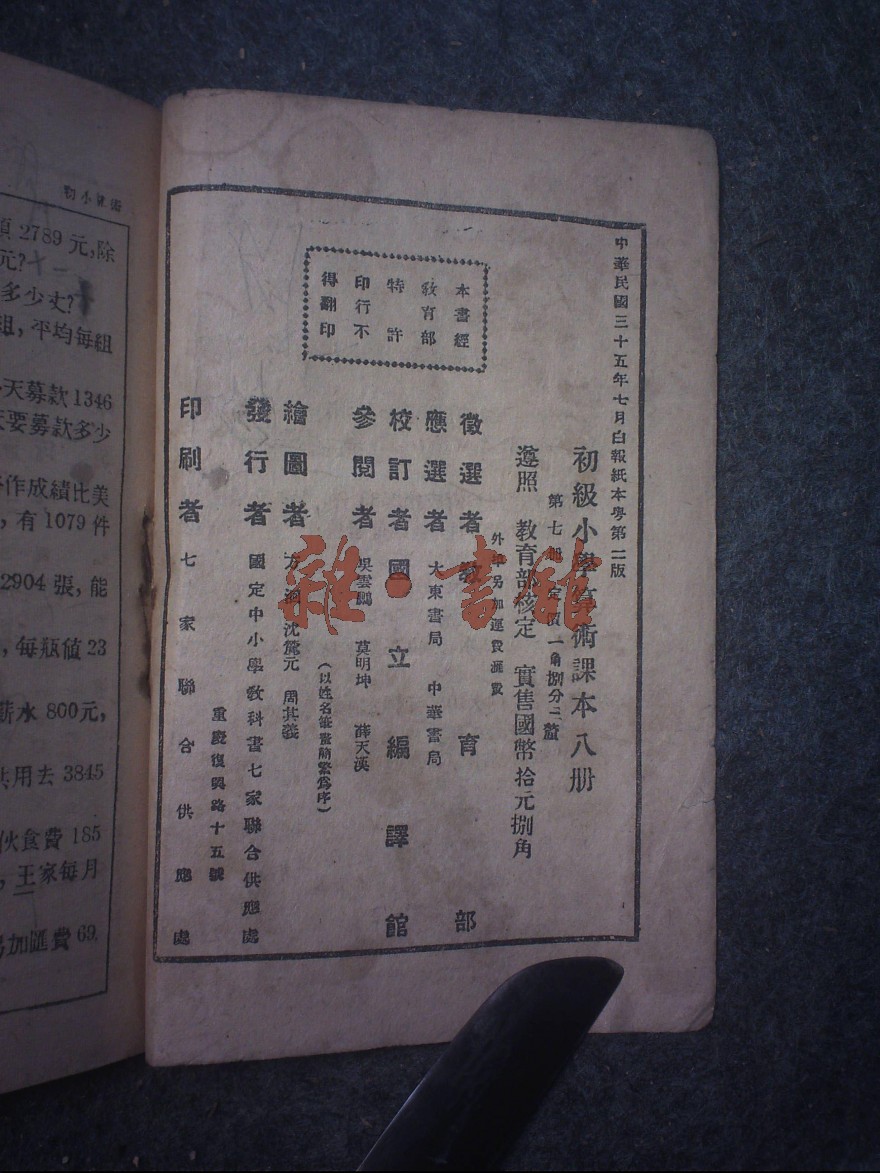 中華民國三十五年七月白報紙本粤第二版
初級小學算術課本八册
第七册 定價一角捌分二釐
遵照 教育部核定 實售國幣拾元捌角
外埠另加運費滙費
本書經
教育部
特許
印行不
得翻印
徵選者 教育部
應選者 大東書局 中華書局
校訂者 國立編譯館
參閱者 吳雲鵬 莫明坤 薛天漢
(以姓名筆畫簡繁爲序)
繪圖者 方洞 沈麓元 周其義
發行者 國定中小學教科書七家聯合供應處
重慶復興路十五號
印刷者 七家聯合供應處
雜·書館
初小算術
2789 元,除
元?
多少丈?
組, 平均每組
天募款 1346
要募款多少
作成績比美
, 有 1079 件
2904 張, 能
, 每瓶値 23
薪水 800元,
共用去 3845
伙食費 185
, 王家每月
加匯費 69.